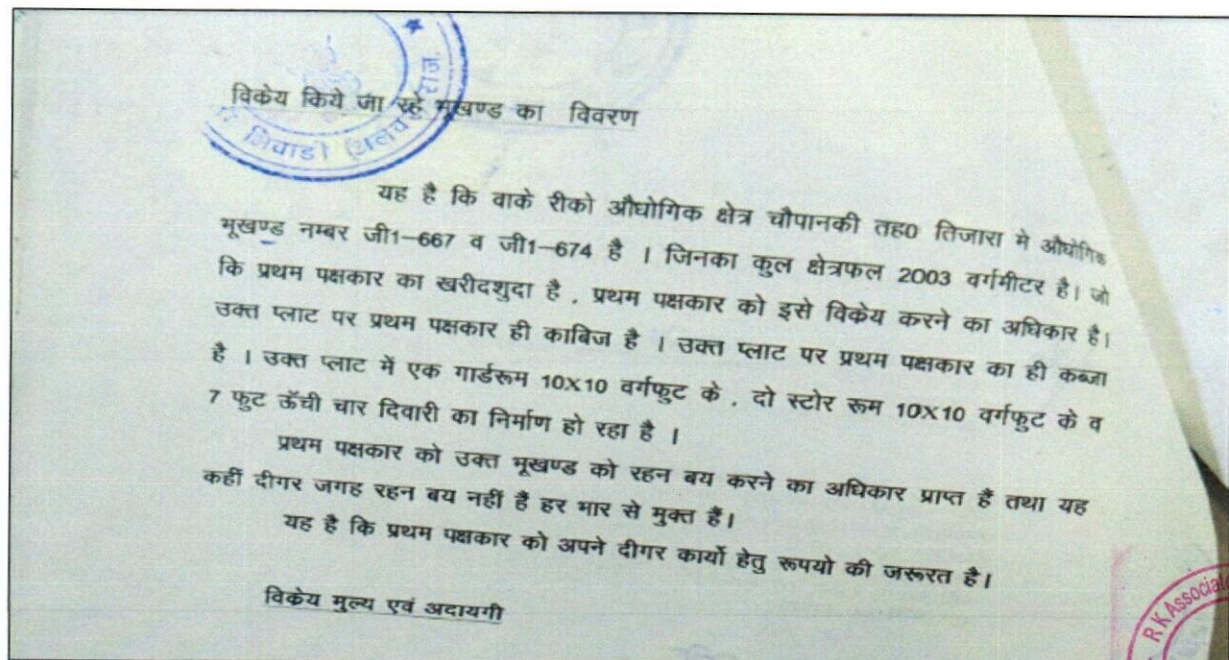 विकेय किये जा रहे भूखण्ड का विवरण
भिवाडी (अलवर) राज.
यह है कि वाके रीको औघोगिक क्षेत्र चौपानकी तह0 तिजारा मे औघोगिक
भूखण्ड नम्बर जी1-667 व जी1-674 है । जिनका कुल क्षेत्रफल 2003 वर्गमीटर है। जो
कि प्रथम पक्षकार का खरीदशुदा है , प्रथम पक्षकार को इसे विकेय करने का अधिकार है।
उक्त प्लाट पर प्रथम पक्षकार ही काबिज है । उक्त प्लाट पर प्रथम पक्षकार का ही कब्जा
है । उक्त प्लाट में एक गार्डरूम 10X10 वर्गफुट के , दो स्टोर रूम 10X10 वर्गफुट के व
7 फुट ऊँची चार दिवारी का निर्माण हो रहा है ।
प्रथम पक्षकार को उक्त भूखण्ड को रहन बय करने का अधिकार प्राप्त हैं तथा यह
कहीं दीगर जगह रहन बय नहीं हैं हर भार से मुक्त हैं।
यह है कि प्रथम पक्षकार को अपने दीगर कार्यो हेतु रूपयो की जरूरत है।
विकेय मुल्य एवं अदायगी
RKAssocia